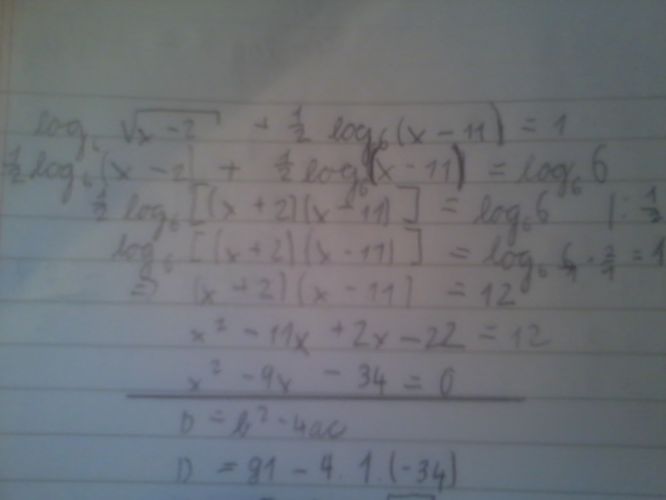 log₆ √x-2 + 1/2 log₆(x-11) = 1
1/2 log₆(x-2) + 1/2 log₆(x-11) = log₆6
1/2 log₆[(x+2)(x-11)] = log₆6 |: 1/2
log₆[(x+2)(x-11)] = log₆
⇒ (x+2)(x-11) = 12
x² - 11x + 2x - 22 = 12
x² - 9x - 34 = 0
D = b² - 4ac
D = 81 - 4.1.(-34)